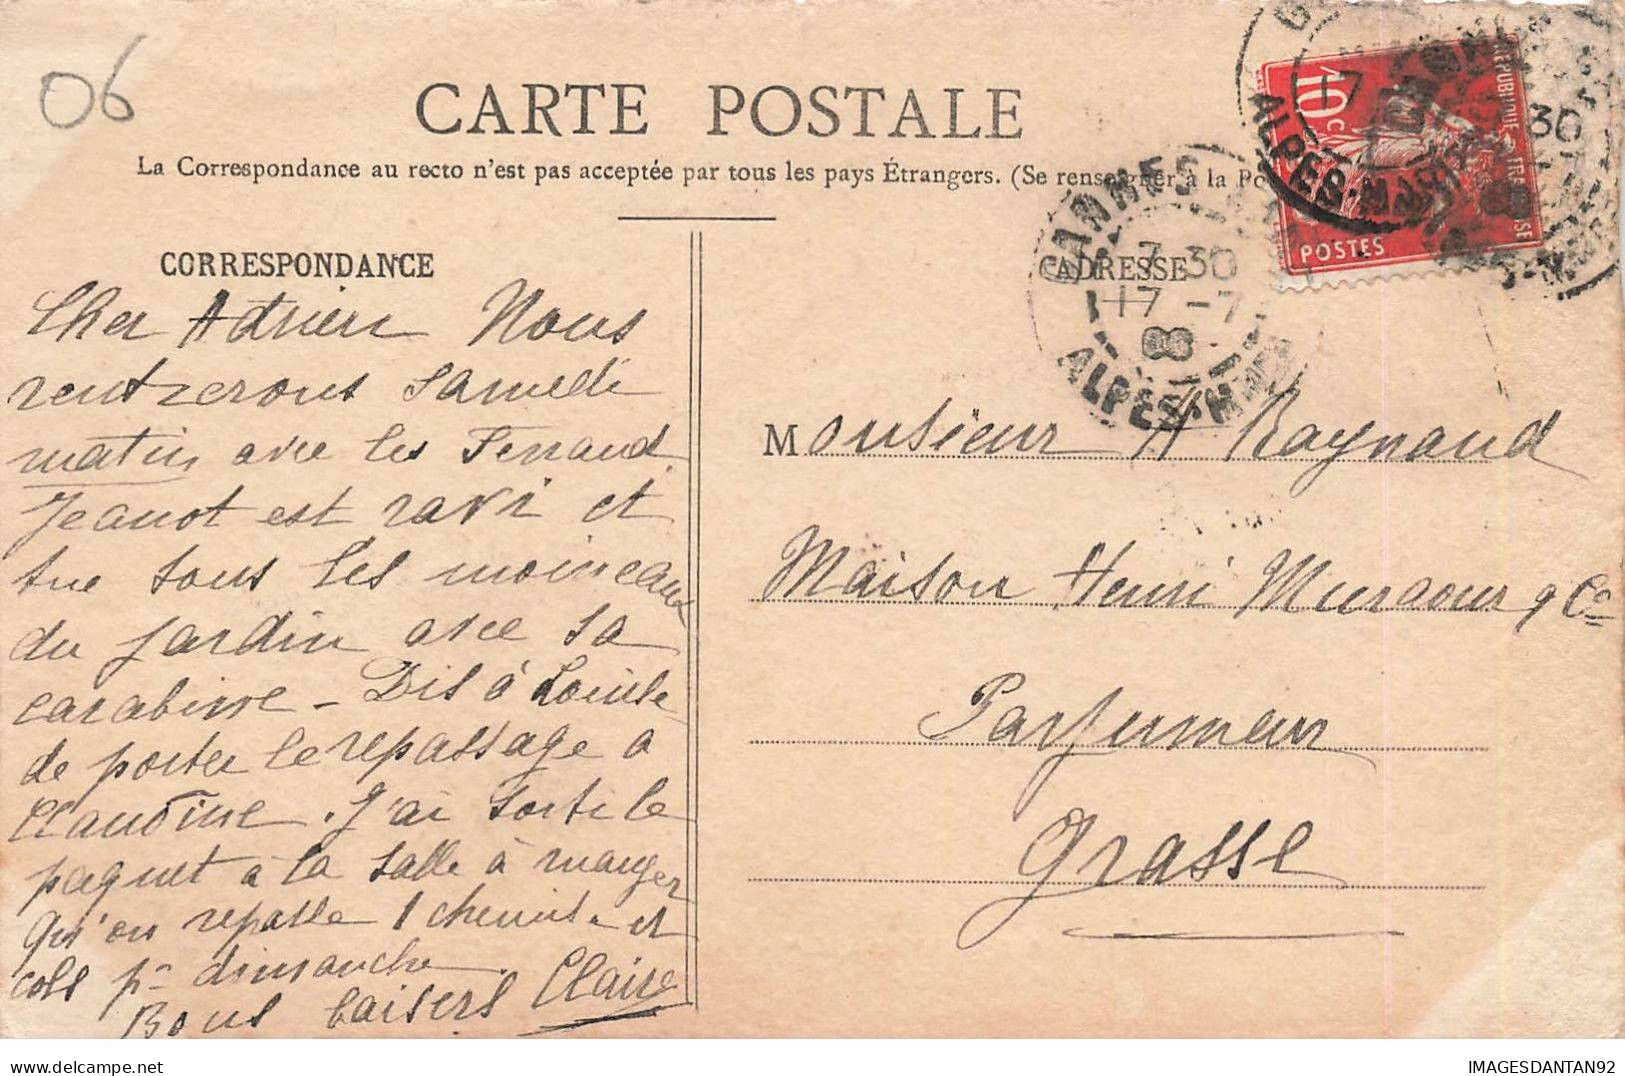 06
CARTE POSTALE
La Correspondance au recto n'est pas acceptée par tous les pays Étrangers. (Se renseigner à la Po
CORRESPONDANCE
Cher Adrien Nous
rentrerons samedi
matin avec les Ferraud
Jeanot est ravi et
tue tous les moineaux
du jardin avec sa
carabine - Dis à Louise
de porter le repassage à
Claudine. J'ai sorti le
paquet à la salle à manger
Qu'on repasse 1 chemise et
cols pr dimanche.
Bons baisers Claire
ADRESSE
Monsieur A Raynaud
Maison Henri Muraour & Co
Parfumeur
Grasse
CANNES
7 30
17 -7
08
ALPES-M
REPUBLIQUE FRANÇAISE
10 c
POSTES
17
30
ALPES-MARIT
IMAGESDANTAN92